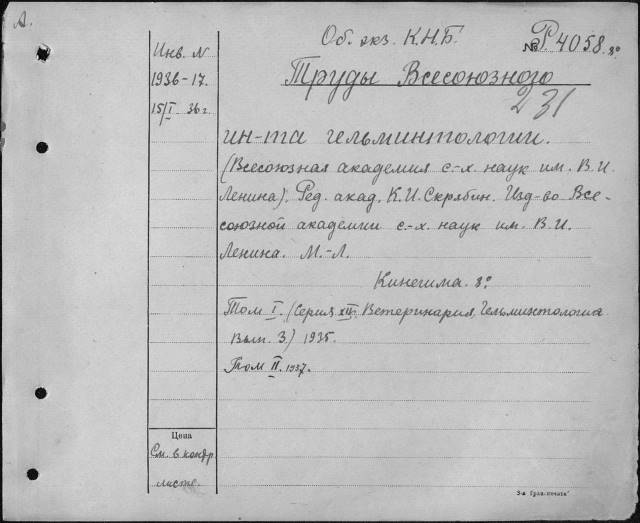 А.
Об. экз. К.Н.Б.
№ Р. 4058. 8°
Инв. N
1936-17.
15/I 36 г.
Труды Всесоюзного
231
ин-та гельминтологии.
(Всесоюзная академия с-х. наук им. В.И.
Ленина). Ред. акад. К.И. Скрябин. Изд-во Все-
союзной академии с.-х. наук им. В.И.
Ленина. М.-Л.
8°
Том I. (Серия XIII. Ветеринария, Гельминтология
Вып. 3) 1935.
Том II. 1937.
Цена
См. в контр
листе.
3-я Фаб. печати